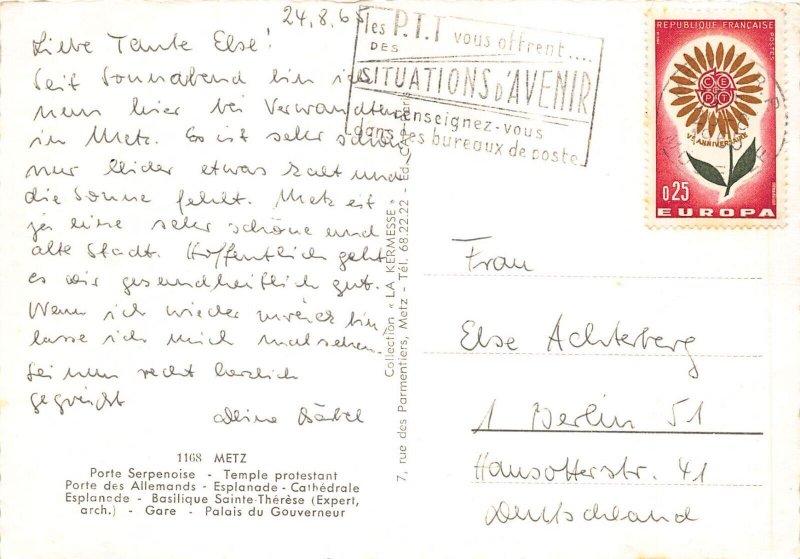 24.8.65
Liebe Tante Else!
Seit Sonnabend bin ich
nun hier bei Verwandten
in Metz. Es ist sehr schön,
nur leider etwas kalt und
die Sonne fehlt. Metz ist
ja eine sehr schöne und
alte Stadt. Hoffentlich geht
es dir gesundheitlich gut.
Wenn ich wieder zurück bin,
lasse ich mich mal sehen.
Sei nun recht herzlich
gegrüsst
Deine Bärbel
1168 METZ
Porte Serpenoise - Temple protestant
Porte des Allemands - Esplanade - Cathédrale
Esplanade - Basilique Sainte-Thérèse (Expert,
arch.) - Gare - Palais du Gouverneur
Collection « LA KERMESSE » - Ed.
7, rue des Parmentiers, Metz - Tél. 68.22.22
les P.T.T vous offrent....
DES
SITUATIONS d'AVENIR
renseignez-vous
dans les bureaux de poste
REPUBLIQUE FRANÇAISE
POSTES
CEPT
Ve ANNIVERSAIRE
0,25
EUROPA
Frau
Else Achterberg
1 Berlin 51
Hansotterstr. 41
Deutschland